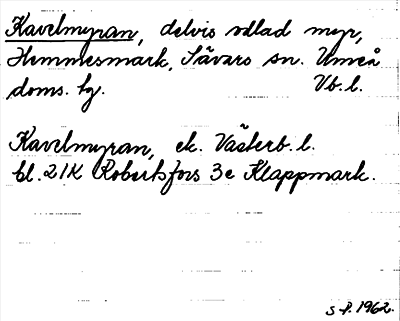 Kavelmyran, delvis odlad myr,
Hemmesmark, Sävars sn. Umeå
doms. hg. Vb. l.
Kavelmyran, ek. Västerb. l.
bl. 21K Robertsfors 3e Klappmark.
S P. 1962.